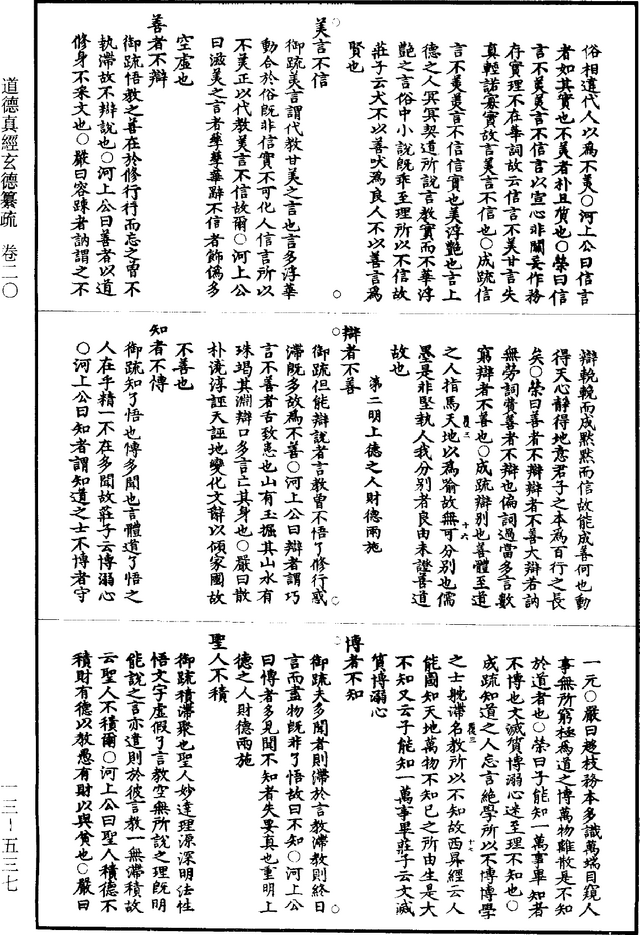 道德真經玄德纂疏　卷二〇
一三－五三七
俗相遺代人以為不美○河上公曰信言
者如其實也不美者朴且質也○榮曰信
言不美美言不信言以宣心非關妄作務
存實理不在華詞故云信言不美甘言失
真輕諾寡實故言美言不信也○成疏信
言不美美言不信信實也美浮豔也言上
德之人冥冥契道所說言教實而不華浮
豔之言俗中小說既乖至理所以不信故
莊子云犬不以善吠為良人不以善言為
賢也
美言不信
御疏美言謂代教甘美之言也言多浮華
動合於俗既非信實不可化人信言所以
不美正以代教美言不信故爾○河上公
曰滋美之言者孳孳華辭不信者飾偽多
空虛也
善者不辯
御疏悟教之善在於修行行而忘之曾不
執滯故不辯說也○河上公曰善者以道
修身不采文也○嚴曰容踈者訥謂之不
辯輓輓而成默默而信故能成善何也動
得天心靜得地意君子之本為百行之長
矣○榮曰善者不辯辯者不善大辯若訥
無勞詞費善者不辯也偏詞過當多言數
窮辯者不善也○成疏辯別也善體至道
之人指馬天地以為喻故無可分別也儒
墨是非堅執人我分別者良由未證善道
故也
第二明上德之人財德兩施
辯者不善
御疏但能辯說者言教曾不悟了修行惑
滯既多故為不善○河上公曰辯者謂巧
言不善者舌致患也山有玉掘其山水有
珠竭其淵辯口多言亡其身也○嚴曰散
朴澆淳誣天誣地變化文辭以傾家國故
不善也
知者不博
御疏知了悟也博多聞也言體道了悟之
人在乎精一不在多聞故莊子云博溺心
○河上公曰知者謂知道之士不博者守
一元○嚴曰趍枝務本多識萬端目窺人
事無所窮極為道之博萬物離散是不知
於道者也○榮曰子能知一萬事畢知者
不博也文滅質博溺心迷至理不知也○
成疏知道之人忘言絕學所以不博博學
之士躭滯名教所以不知故西昇經云人
能圖知天地萬物不知己之所由生是大
不知又云子能知一萬事畢莊子云文滅
質博溺心
博者不知
御疏夫多聞者則滯於言教滯教則終日
言而盡物既非了悟故曰不知○河上公
曰博者多見聞不知者失要真也重明上
德之人財德兩施
聖人不積
御疏積滯聚也聖人妙達理源深明法性
悟文字虛假了言教空無所說之理既明
能說之言亦遣則於彼言教一無滯積故
云聖人不積爾○河上公曰聖人積德不
積財有德以教愚有財以與貧也○嚴曰